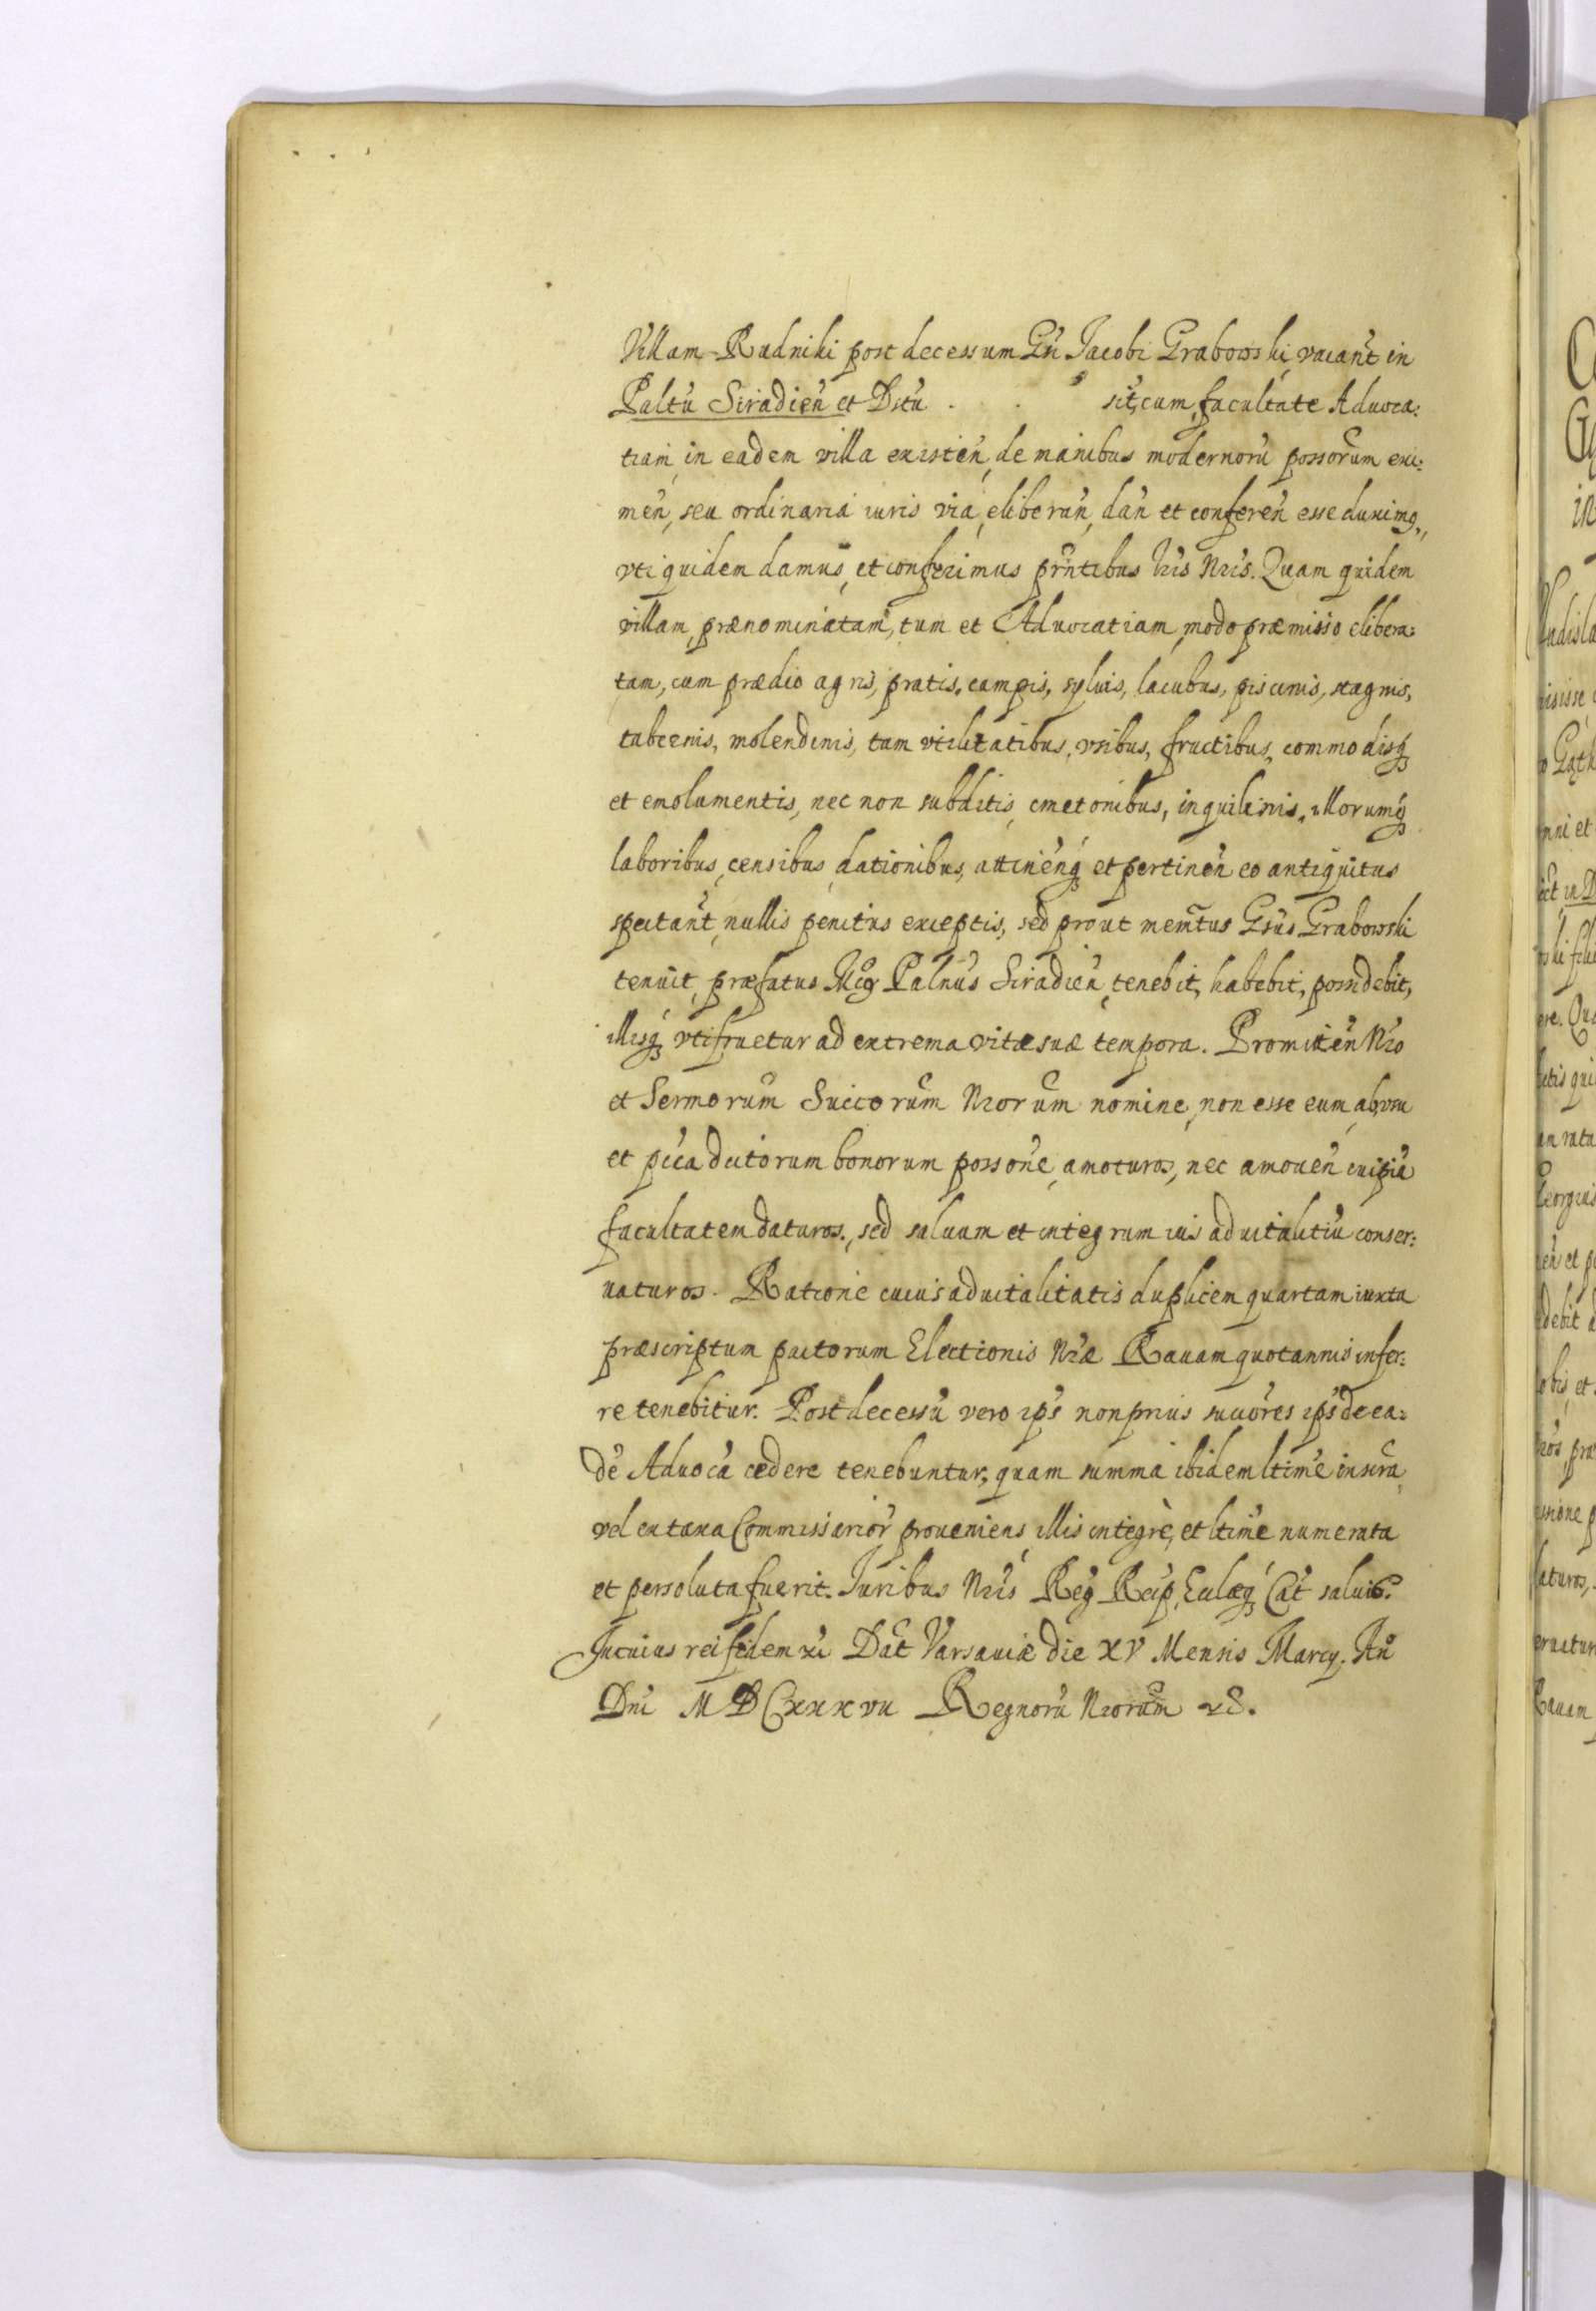 Villam Rudniki post decessum Gñ Jacobi Grabowski, vacañt in
Paltũ Siradieñ et Dstũ . . sit, cum facultate Aduoca:
tiam in eadem villa existeñ, de manibus modernorũ possorum exi:
meñ, seu ordinaria iuris via, eliberañ, dañ et confereñ esse duximq,
vti quidem damus, et conferimus prñtibus lris Nris. Quam quidem
villam prænominatam, tum et Aduocatiam, modo præmisso elibera:
tam, cum prædio agris, pratis, campis, syluis, lacubus, piscinis, stagnis,
tabernis, molendinis, tam vtilitatibus, vsibus, fructibus, commodisq
et emolumentis, nec non subditis, cmetonibus, inquilinis, illorumq
laboribus, censibus, dationibus, attineñq et pertineñ eo antiquitus
spectañt, nullis penitus exceptis, sed prout memtus Gsus Grabowski
tenuit, præfatus Mcq Palnus Siradieñ, tenebit, habebit, possidebit,
illisq vtifruetur ad extrema vitæ suæ tempora. Promitteñ Nro
et Sermorum Succorum Nrorum nomine, non esse eum, ab vsu
et pcca dictorum bonorum possone, amoturos, nec amoueñ cuipiã
facultatem daturos, sed saluam et integrum ius aduitalitiũ conser:
uaturos. Ratione cuius aduitalitatis duplicem quartam iuxta
præscriptum pactorum Electionis Nræ Rauam quotannis infer:
re tenebitur. Post decessũ vero ips non prius succores ips de ea:
dẽ Aduocã cedere tenebuntur, quam summa ibidem ltime inscra,
vel ex taxa Commissarior proueniens, illis integrè, et ltime numerata
et persoluta fuerit. Juribus Nris Reg Reip, Ecclæq Cat saluis.
In cuius rei fidem xc Dat Varsauiæ die XV Mensis Marcy. Añ
Dni MDCxxxvii Regnorũ Nrorum xc.